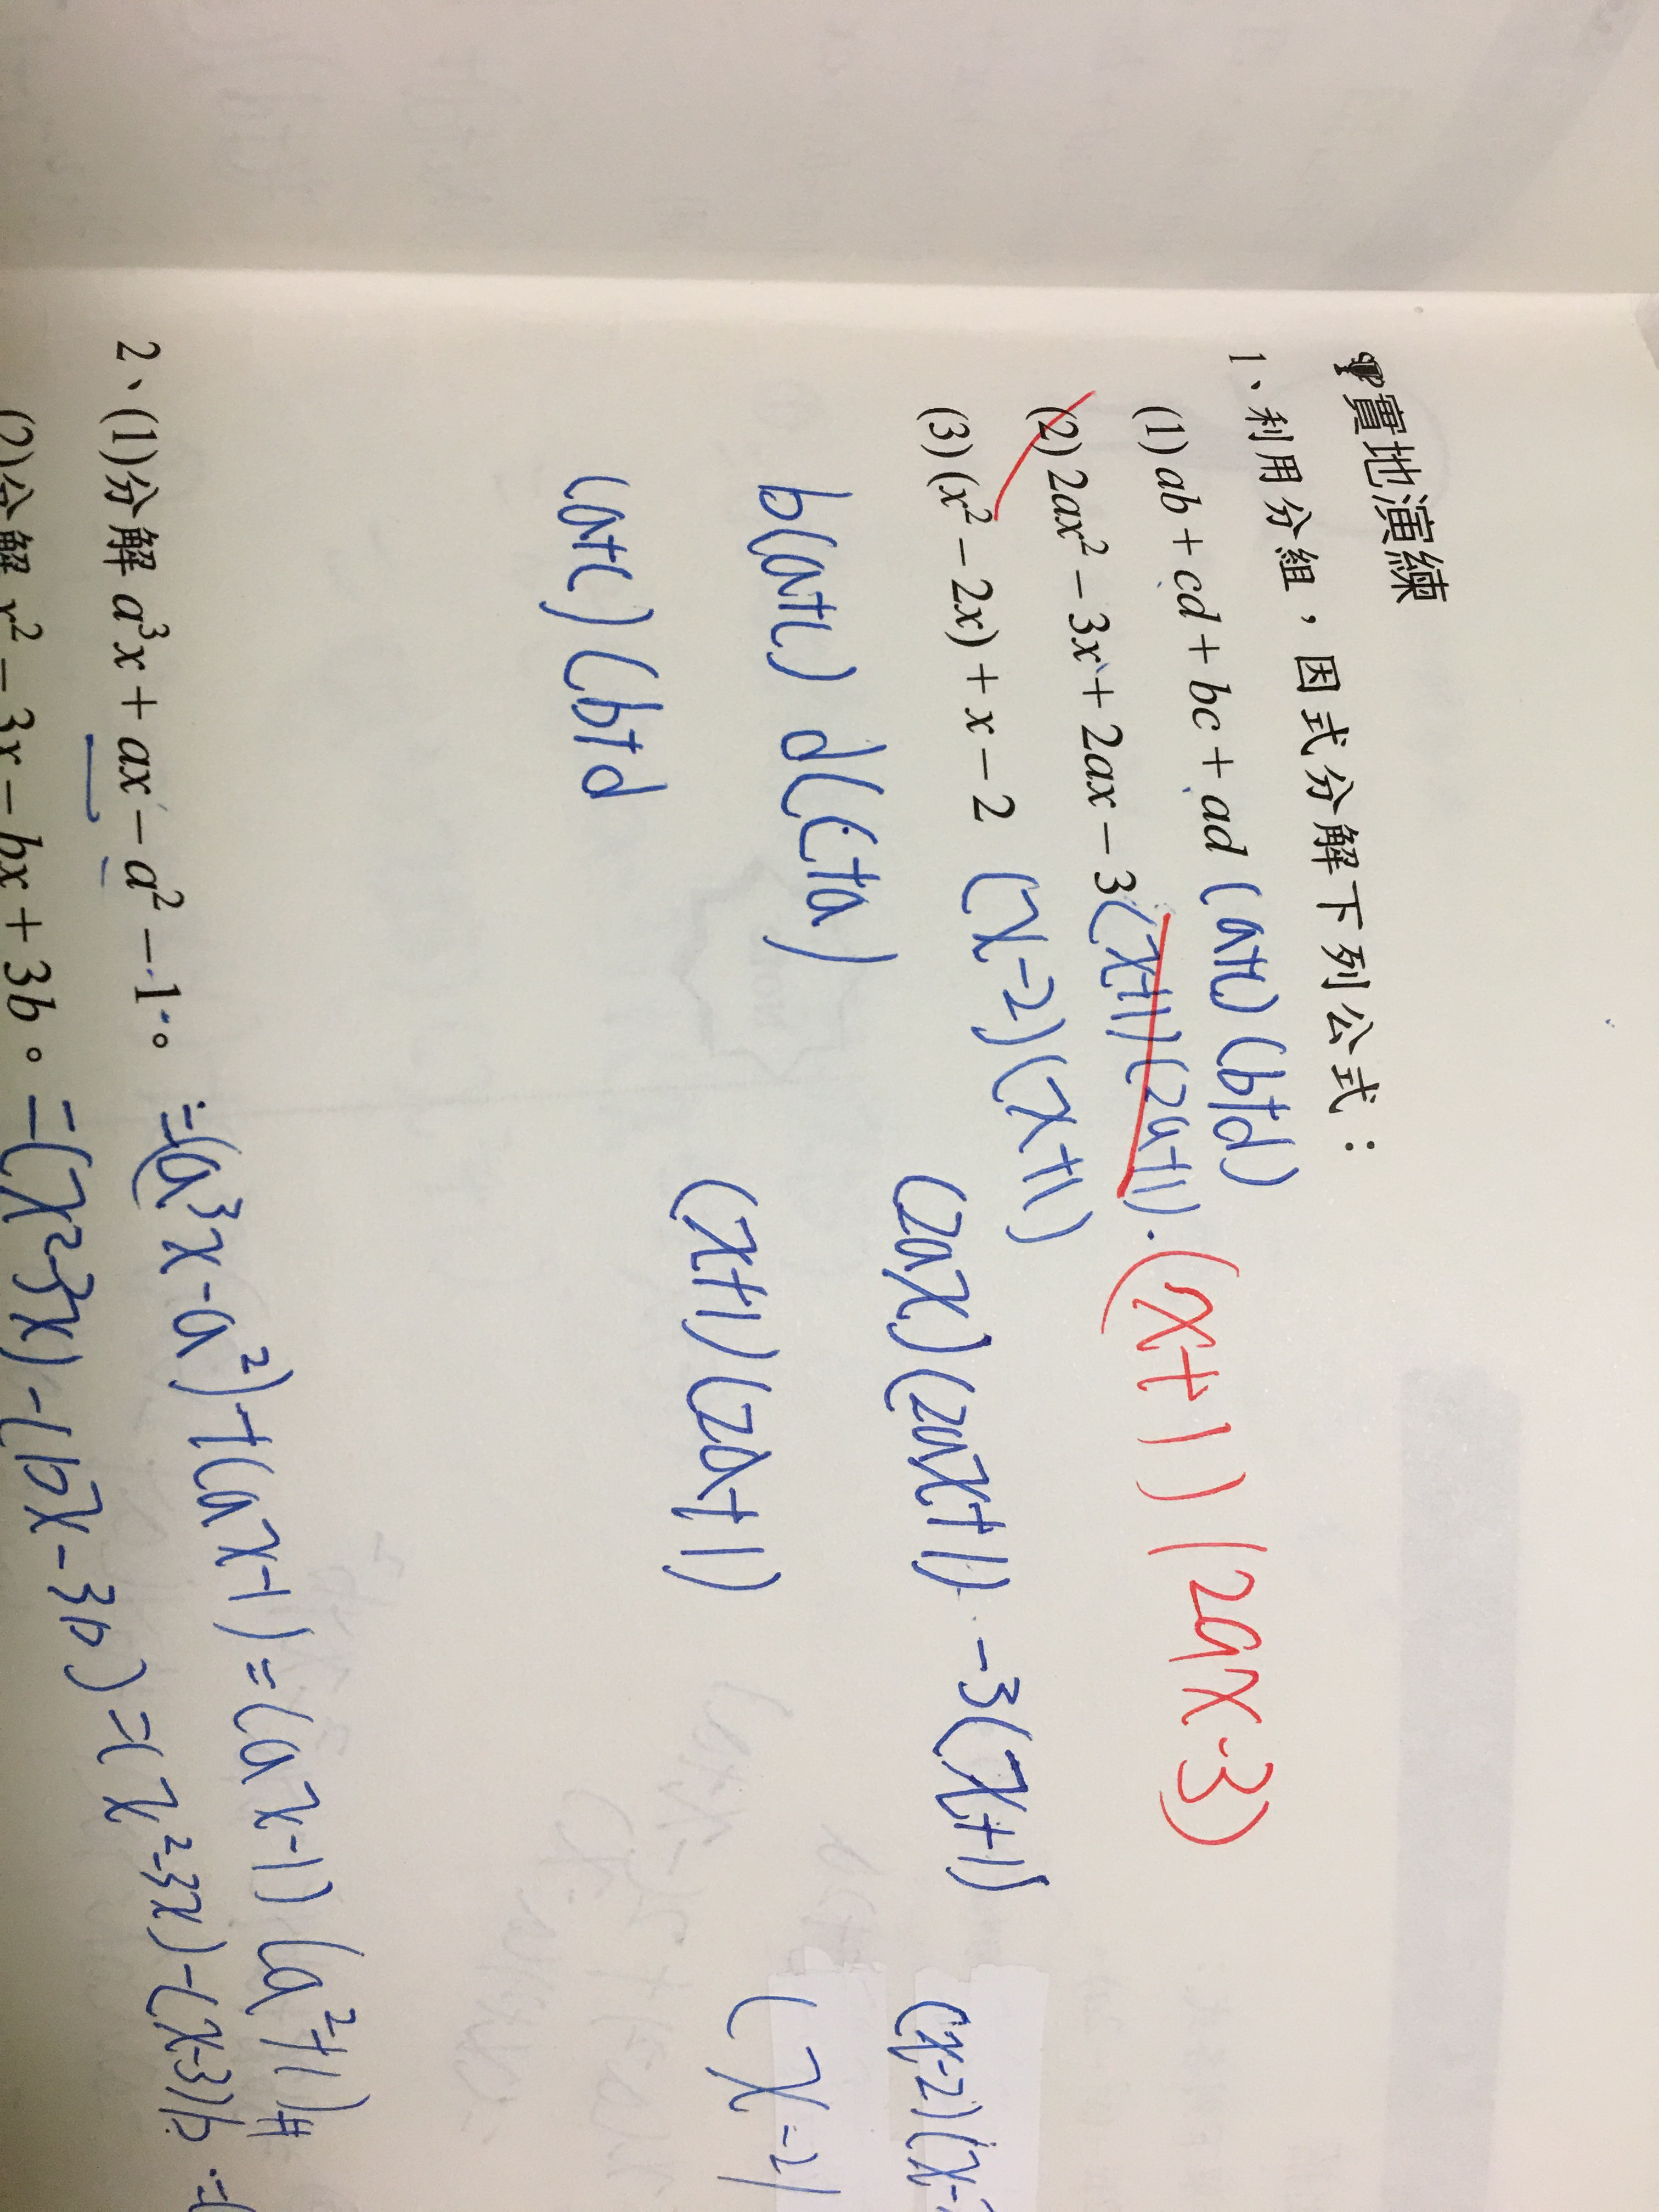 實地演練
1、利用分組，因式分解下列公式：
(1) ab + cd + bc + ad (a+c) (b+d)
(2) 2ax² − 3x + 2ax − 3 (x+1) (2a+1). (x+1) (2ax-3)
(3) (x² − 2x) + x − 2 (x-2) (x+1)
(2ax) (2ax+1) -3(x+1)
(x-2)(x-
b(a+c) d(c+a)
(x+1) (2a+1)
(x-2)
(a+c) (b+d
2、(1)分解 a³x + ax − a² − 1。 =(a³x-a²)+(ax-1)=(ax-1) (a²+1)#
(2)分解 x² − 3x − bx + 3b。 =(x²-3x)-(bx-3b)=(x²-3x)-(x-3)b =(